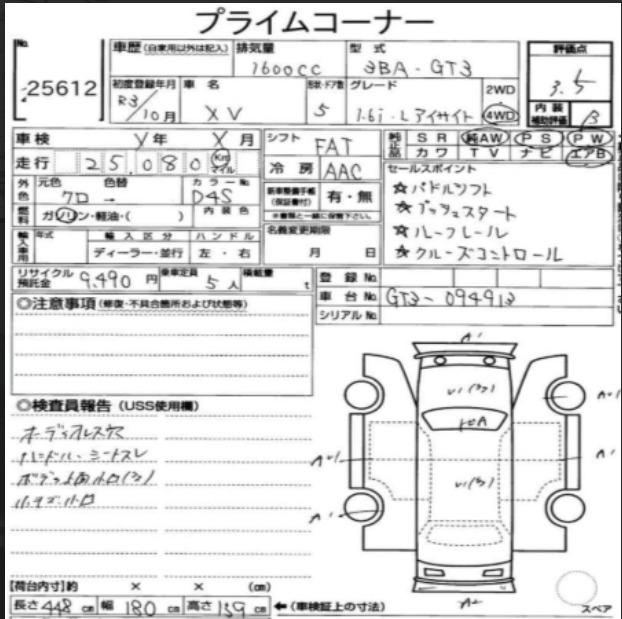 プライムコーナー
No. 25612
車歴 (自家用以外は記入) 排気量 型式 評価点
1600cc 3BA-GT3 3.5
初度登録年月 車名 形状・ドア数 グレード 2WD
R3/10月 XV 5 1.6i-L アイサイト 4WD 内装補助評価 B
車検 Y年 X月 シフト FAT 純正品 SR 純AW PS PW
走行 25,080 Km マイル 冷房 AAC カワ TV ナビ エアB
外色 元色 色替 カラーNo. 新車整備手帳(保証書付) 有・無 セールスポイント
クロ → D4S ※書類と一緒に保管下さい。 ☆パドルシフト
燃料 ガソリン・軽油・( ) 内装色 ☆プッシュスタート
輸入車用 年式 輸入区分 ハンドル 名義変更期限 ☆ルーフレール
ディーラー・並行 左・右 月 日 ☆クルーズコントロール
リサイクル預託金 9,490円 乗車定員 5人 積載量 t 登録No.
車台No. GT3-094913
シリアルNo.
◎注意事項 (修復・不具合箇所および状態等)
◎検査員報告 (USS使用欄)
オーディオレス穴
ハンドル・シートスレ
ボディ上面小凹(多)
小キズ・小凹
A1
U1(多)
A1
U1(多)
A1
A2
【荷台内寸】約 × × (cm)
長さ 448 cm 幅 180 cm 高さ 159 cm ←(車検証上の寸法) スペア